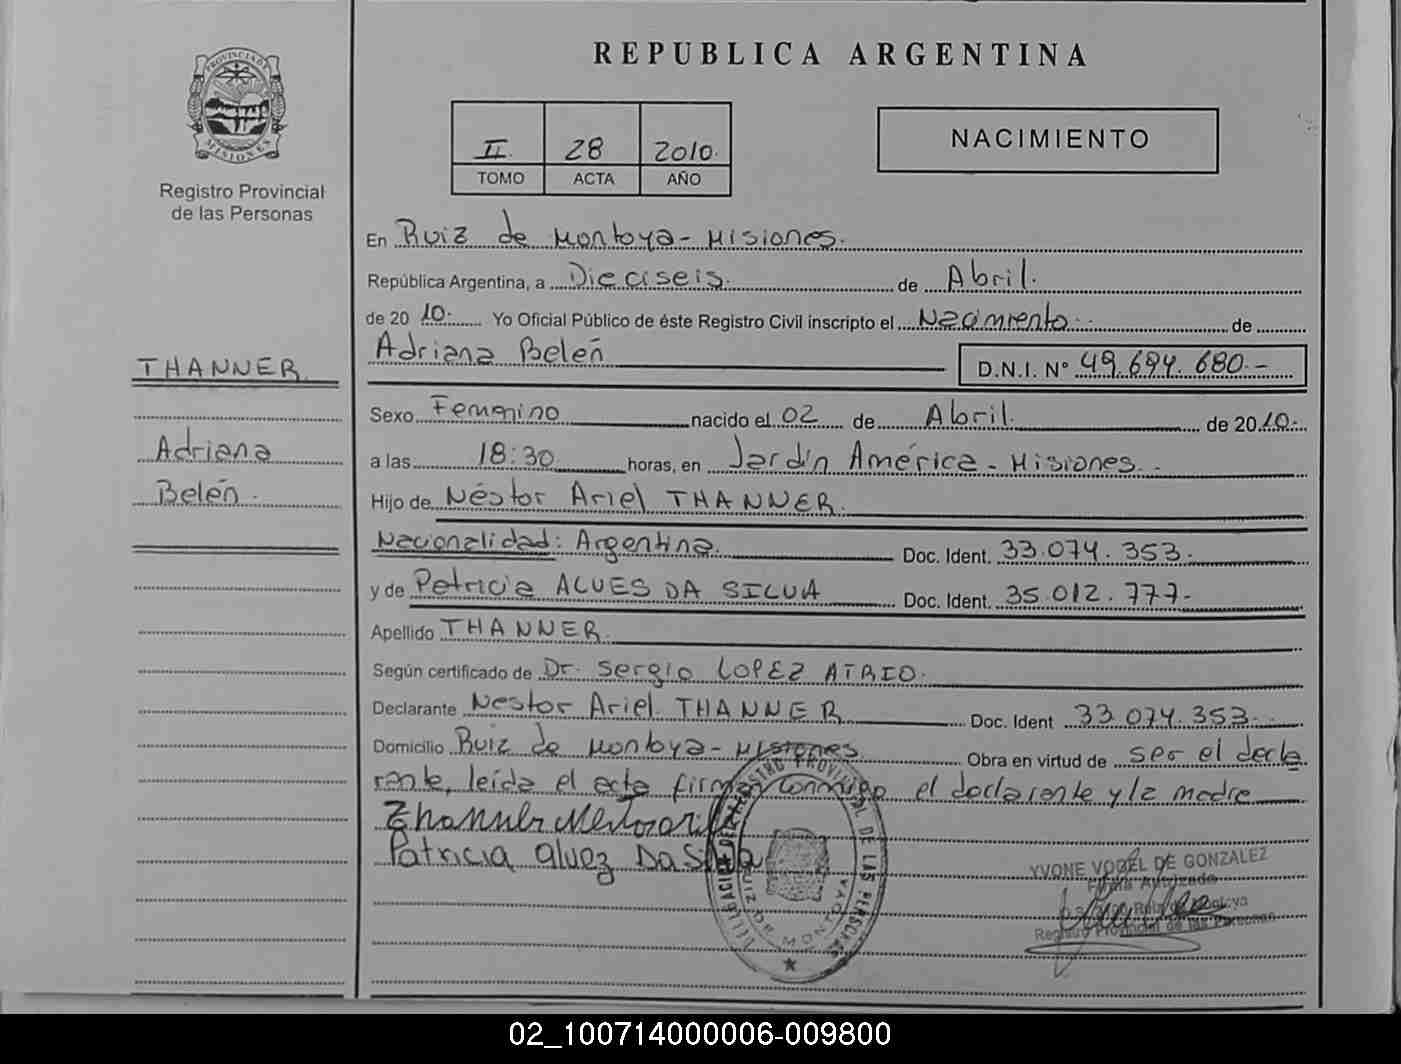 PROVINCIA DE
MISIONES
Registro Provincial
de las Personas
THANNER
Adriana
Belén.
REPUBLICA ARGENTINA
II. 28 2010.
TOMO ACTA AÑO
NACIMIENTO
En Ruiz de Montoya - Misiones.
República Argentina, a Dieciseis. de Abril.
de 20 10. Yo Oficial Público de éste Registro Civil inscripto el Nacimiento de
Adriana Belén D.N.I. N° 49.694.680.-
Sexo Femenino nacido el 02 de Abril. de 2010.-
a las 18:30 horas, en Jardín América - Misiones.-
Hijo de Néstor Ariel THANNER.
Nacionalidad: Argentina. Doc. Ident. 33.074.353.
y de Patricia ALVES DA SILVA Doc. Ident. 35.012.777-
Apellido THANNER.
Según certificado de Dr. Sergio LOPEZ ATRIO.
Declarante Nestor Ariel THANNER Doc. Ident 33.074.353.-
Domicilio Ruiz de Montoya - Misiones Obra en virtud de ser el decla
rante, leída el acta firman conmigo el declarante y la madre
Thanner Nestor Ariel
Patricia alvez Da Silva
DELEGACION DEL REGISTRO PROVINCIAL DE LAS PERSONAS
RUIZ DE MONTOYA
YVONE VOGEL DE GONZALEZ
Firma Autorizada
Ruiz de Montoya
Registro Provincial de las Personas
02_100714000006-009800